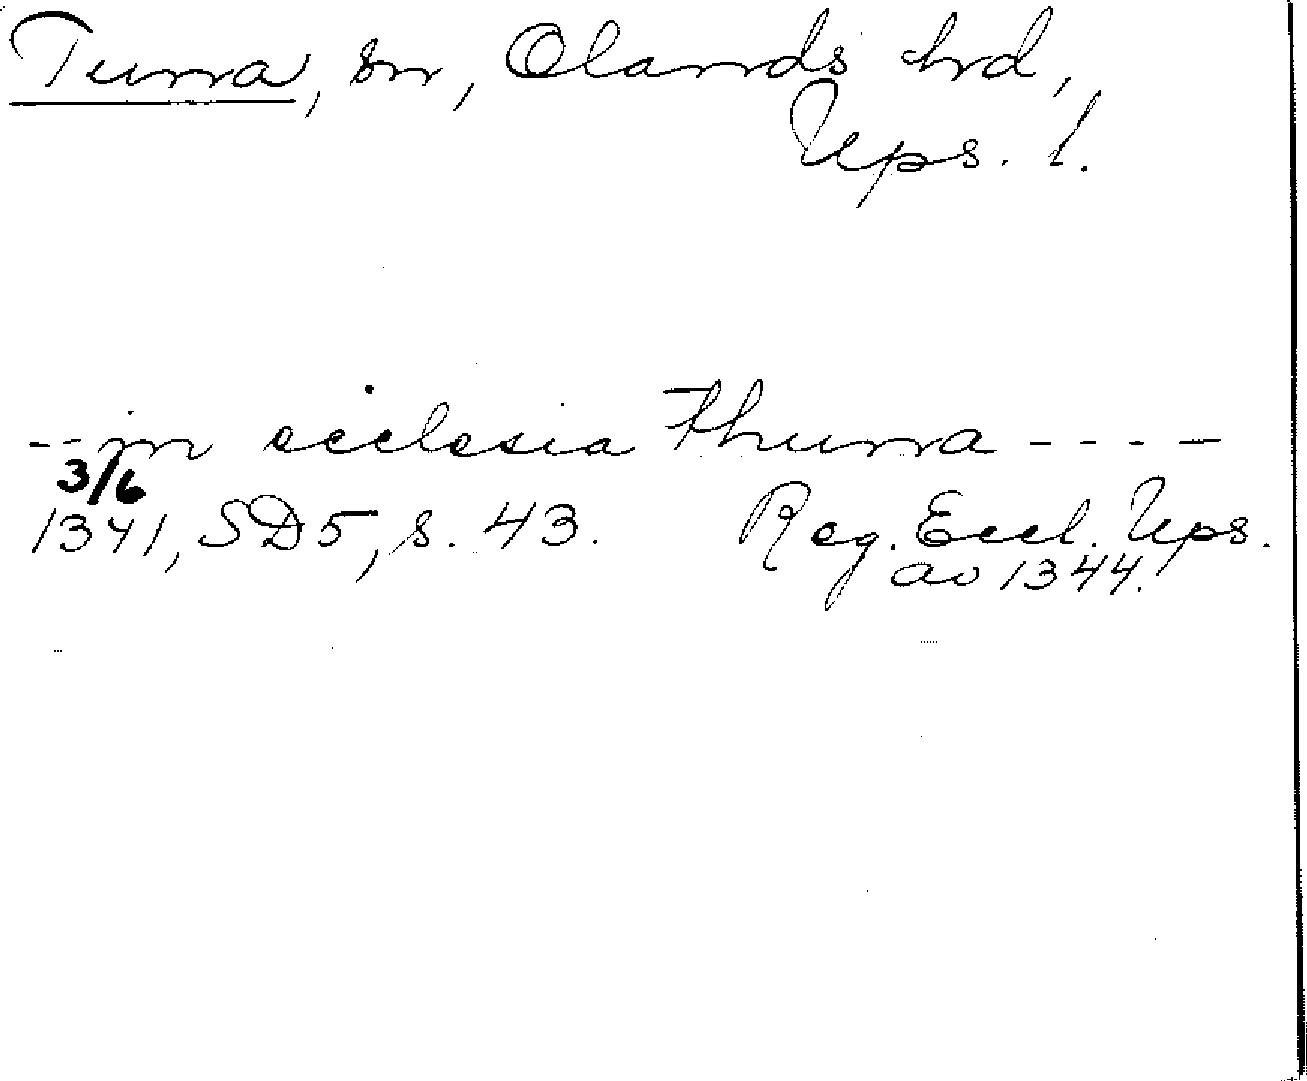 Tuna, sn, Olands hrd,
Ups. l.
--in ecclesia Thuna ----
3/6
1341, SD5, s. 43. Reg. Eccl. Ups.
av 1344.